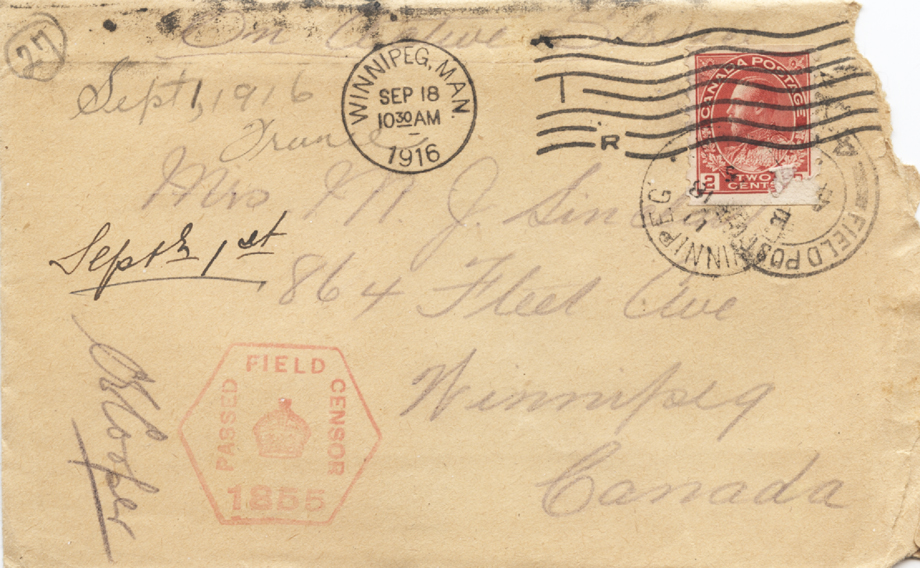 27
On Active Service
Sept 1, 1916
France
WINNIPEG, MAN.
SEP 18
10 30 AM
1916
R
CANADA POSTAGE
2 TWO CENTS
WINNIPEG
FIELD POST
Mrs J.
864 Fleet Ave
Winnipeg
Canada
Septh 1st
PASSED FIELD CENSOR
1855